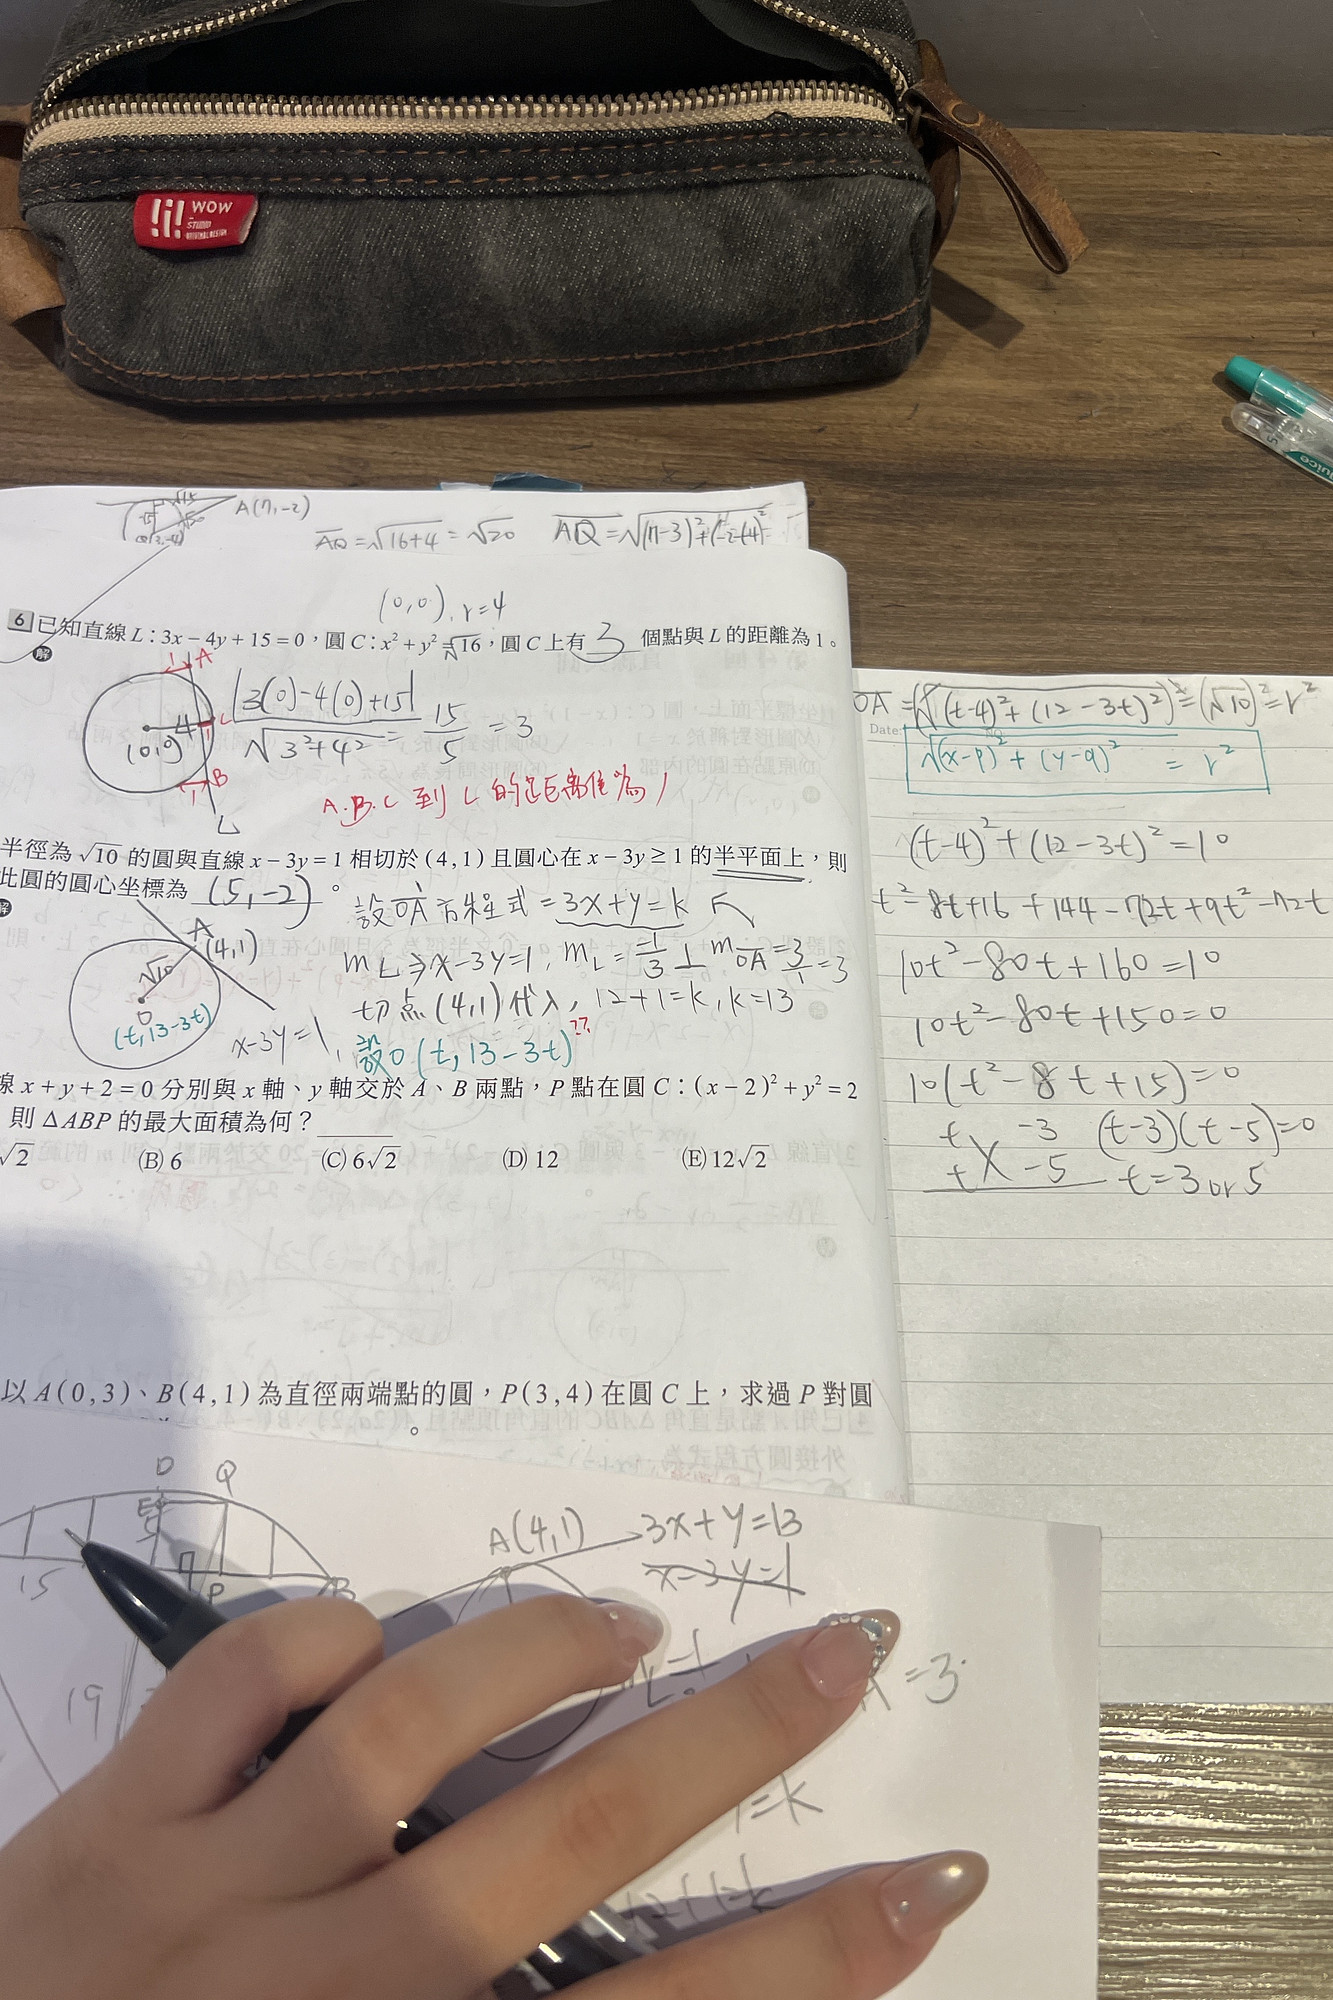 WOW
STUDIO
uice
A(7,-2)
AQ = √16+4 = √20
AQ = √(7-3)²+(-2-(-4))²
(0,0), r=4
6 已知直線 L:3x-4y+15=0,圓 C:x²+y²=16,圓 C 上有 3 個點與 L 的距離為 1。
解
1 A
4
(0,0)
B
1
L
|3(0)-4(0)+15|
√3²+4² = 15/5 = 3
A.B.C 到 L 的距離皆為 1
半徑為 √10 的圓與直線 x-3y=1 相切於 (4,1) 且圓心在 x-3y≥1 的半平面上,則
此圓的圓心坐標為 (5,-2)。
解
設 OA 方程式 = 3x+y=k
A
(4,1)
√10
O
(t,13-3t)
x-3y=1
m L ⇒ x-3y=1, mL = 1/3 ⊥ m OA = 3/1 = 3
切點 (4,1) 代入, 12+1=k, k=13
設 O (t, 13-3t) ??
線 x+y+2=0 分別與 x 軸、y 軸交於 A、B 兩點,P 點在圓 C:(x-2)²+y²=2
則 △ABP 的最大面積為何?
√2 (B) 6 (C) 6√2 (D) 12 (E) 12√2
以 A(0,3)、B(4,1) 為直徑兩端點的圓,P(3,4) 在圓 C 上,求過 P 對圓
。
OA = (√(t-4)²+(12-3t)²)² = (√10)² = r²
Date:
√(x-p)²+(y-q)² = r²
(t-4)²+(12-3t)²=10
t²-8t+16+144-72t+9t²-72t
10t²-80t+160=10
10t²-80t+150=0
10(t²-8t+15)=0
t -3 (t-3)(t-5)=0
t -5 t=3 or 5
D Q
15 P B
19
A(4,1) 3x+y=13
x-3y=1
=3
=k